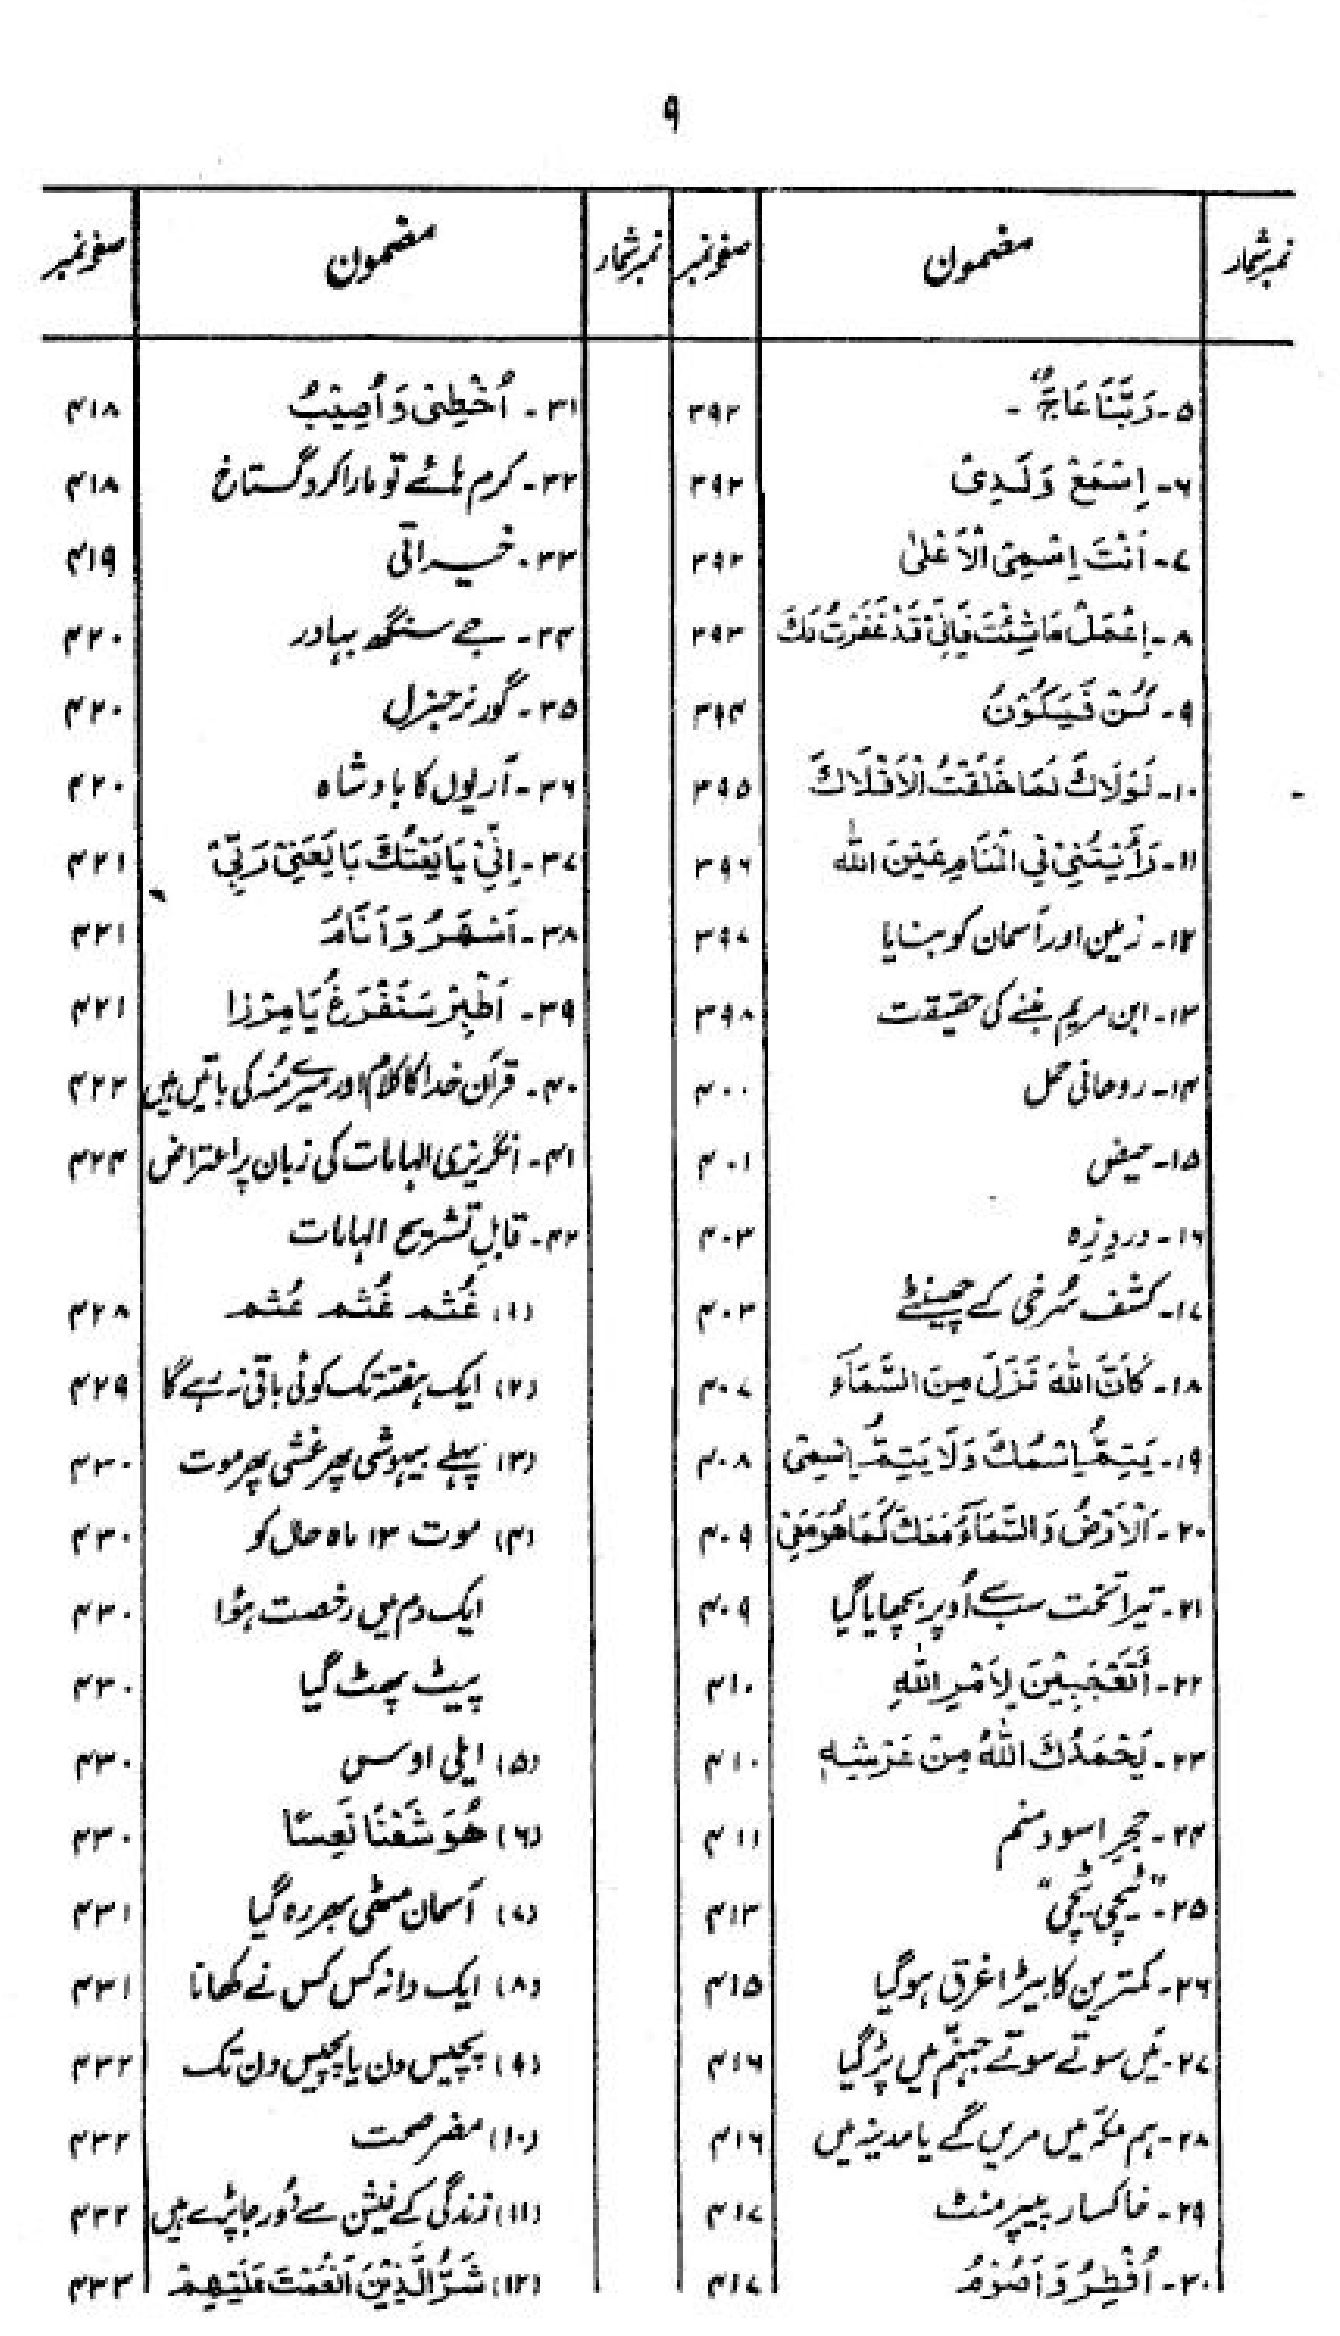 ۹
نمبر شمار | مضمون | صفحہ نمبر | نمبر شمار | مضمون | صفحہ نمبر
۵- رَبُّنَا عَاجٌّ - ۳۹۲
۶- اِسْمَعْ وَلَدِیْ ۳۹۲
۷- اَنْتَ اِسْمِیَ الْاَعْلٰی ۳۹۲
۸- اِعْمَلْ مَا شِئْتَ فَاِنِّیْ قَدْ غَفَرْتُ لَکَ ۳۹۳
۹- کُنْ فَیَکُوْنُ ۳۹۴
۱۰- لَوْلَاکَ لَمَا خَلَقْتُ الْاَفْلَاکَ ۳۹۵
۱۱- رَأَیْتُنِیْ فِی الْمَنَامِ عَیْنَ اللّٰہ ۳۹۶
۱۲- زمین اور آسمان کو بنایا ۳۹۷
۱۳- ابن مریم بننے کی حقیقت ۳۹۸
۱۴- روحانی حمل ۴۰۰
۱۵- حیض ۴۰۱
۱۶- دردِ زہ ۴۰۳
۱۷- کشف سُرخی کے چھینٹے ۴۰۳
۱۸- کَاَنَّ اللّٰہَ نَزَلَ مِنَ السَّمَآءِ ۴۰۷
۱۹- یَتِمُّ اِسْمُکَ وَلَا یَتِمُّ اِسْمِیْ ۴۰۸
۲۰- اَلْاَرْضُ وَالسَّمَآءُ مَعَکَ کَمَا ھُوَ مَعِیْ ۴۰۹
۲۱- تیرا تخت سب سے اُوپر بچھایا گیا ۴۰۹
۲۲- أَتَعْجَبِیْنَ لِاَمْرِ اللّٰہِ ۴۱۰
۲۳- یَحْمَدُکَ اللّٰہُ مِنْ عَرْشِہٖ ۴۱۰
۲۴- حجرِ اسود منم ۴۱۱
۲۵- "ٹیچی ٹیچی" ۴۱۳
۲۶- کمترین کا بیڑا غرق ہو گیا ۴۱۵
۲۷- مَیں سوتے سوتے جہنّم میں پڑ گیا ۴۱۶
۲۸- ہم مکّہ میں مریں گے یا مدینہ میں ۴۱۶
۲۹- خاکسار پیپرمنٹ ۴۱۷
۳۰- اُفْطِرُ وَاَصُوْمُ ۴۱۷
۳۱- اُخْطِیْ وَاُصِیْبُ ۴۱۸
۳۲- کرم ہائے تو مارا کرد گستاخ ۴۱۸
۳۳- خیراتی ۴۱۹
۳۴- جے سنگھ بہادر ۴۲۰
۳۵- گورنر جنرل ۴۲۰
۳۶- آریوں کا بادشاہ ۴۲۰
۳۷- اِنِّیْ بَایَعْتُکَ بَایَعَنِیْ رَبِّیْ ۴۲۱
۳۸- اَسْھَرُ وَاَنَامُ ۴۲۱
۳۹- اِصْبِرْ سَنَفْرَغُ یَا مِرْزَا ۴۲۱
۴۰- قرآن خدا کا کلام اور میرے مُنہ کی باتیں ہیں ۴۲۲
۴۱- انگریزی الہامات کی زبان پر اعتراض ۴۲۴
۴۲- قابلِ تشریح الہامات
(۱) غُثم غُثم غُثم ۴۲۸
(۲) ایک ہفتہ تک کوئی باقی نہ رہے گا ۴۲۹
(۳) پہلے بیہوشی پھر غشی پھر موت ۴۳۰
(۴) موت ۱۳ ماہ حال کو ۴۳۰
ایک دم میں رخصت ہوُا ۴۳۰
پیٹ پھٹ گیا ۴۳۰
(۵) ایلی اوس ۴۳۰
(۶) ھُوَ شَعْنَا نَعِسًا ۴۳۰
(۷) آسمان مٹھی بھر رہ گیا ۴۳۱
(۸) ایک دانہ کس کس نے کھانا ۴۳۱
(۹) پچیس دن یا پچیس دن تک ۴۳۲
(۱۰) مضر صحت ۴۳۲
(۱۱) زندگی کے فیشن سے دُور جا پڑے ہیں ۴۳۲
(۱۲) شَرُّ الَّذِیْنَ اَنْعَمْتَ عَلَیْھِمْ ۴۳۳